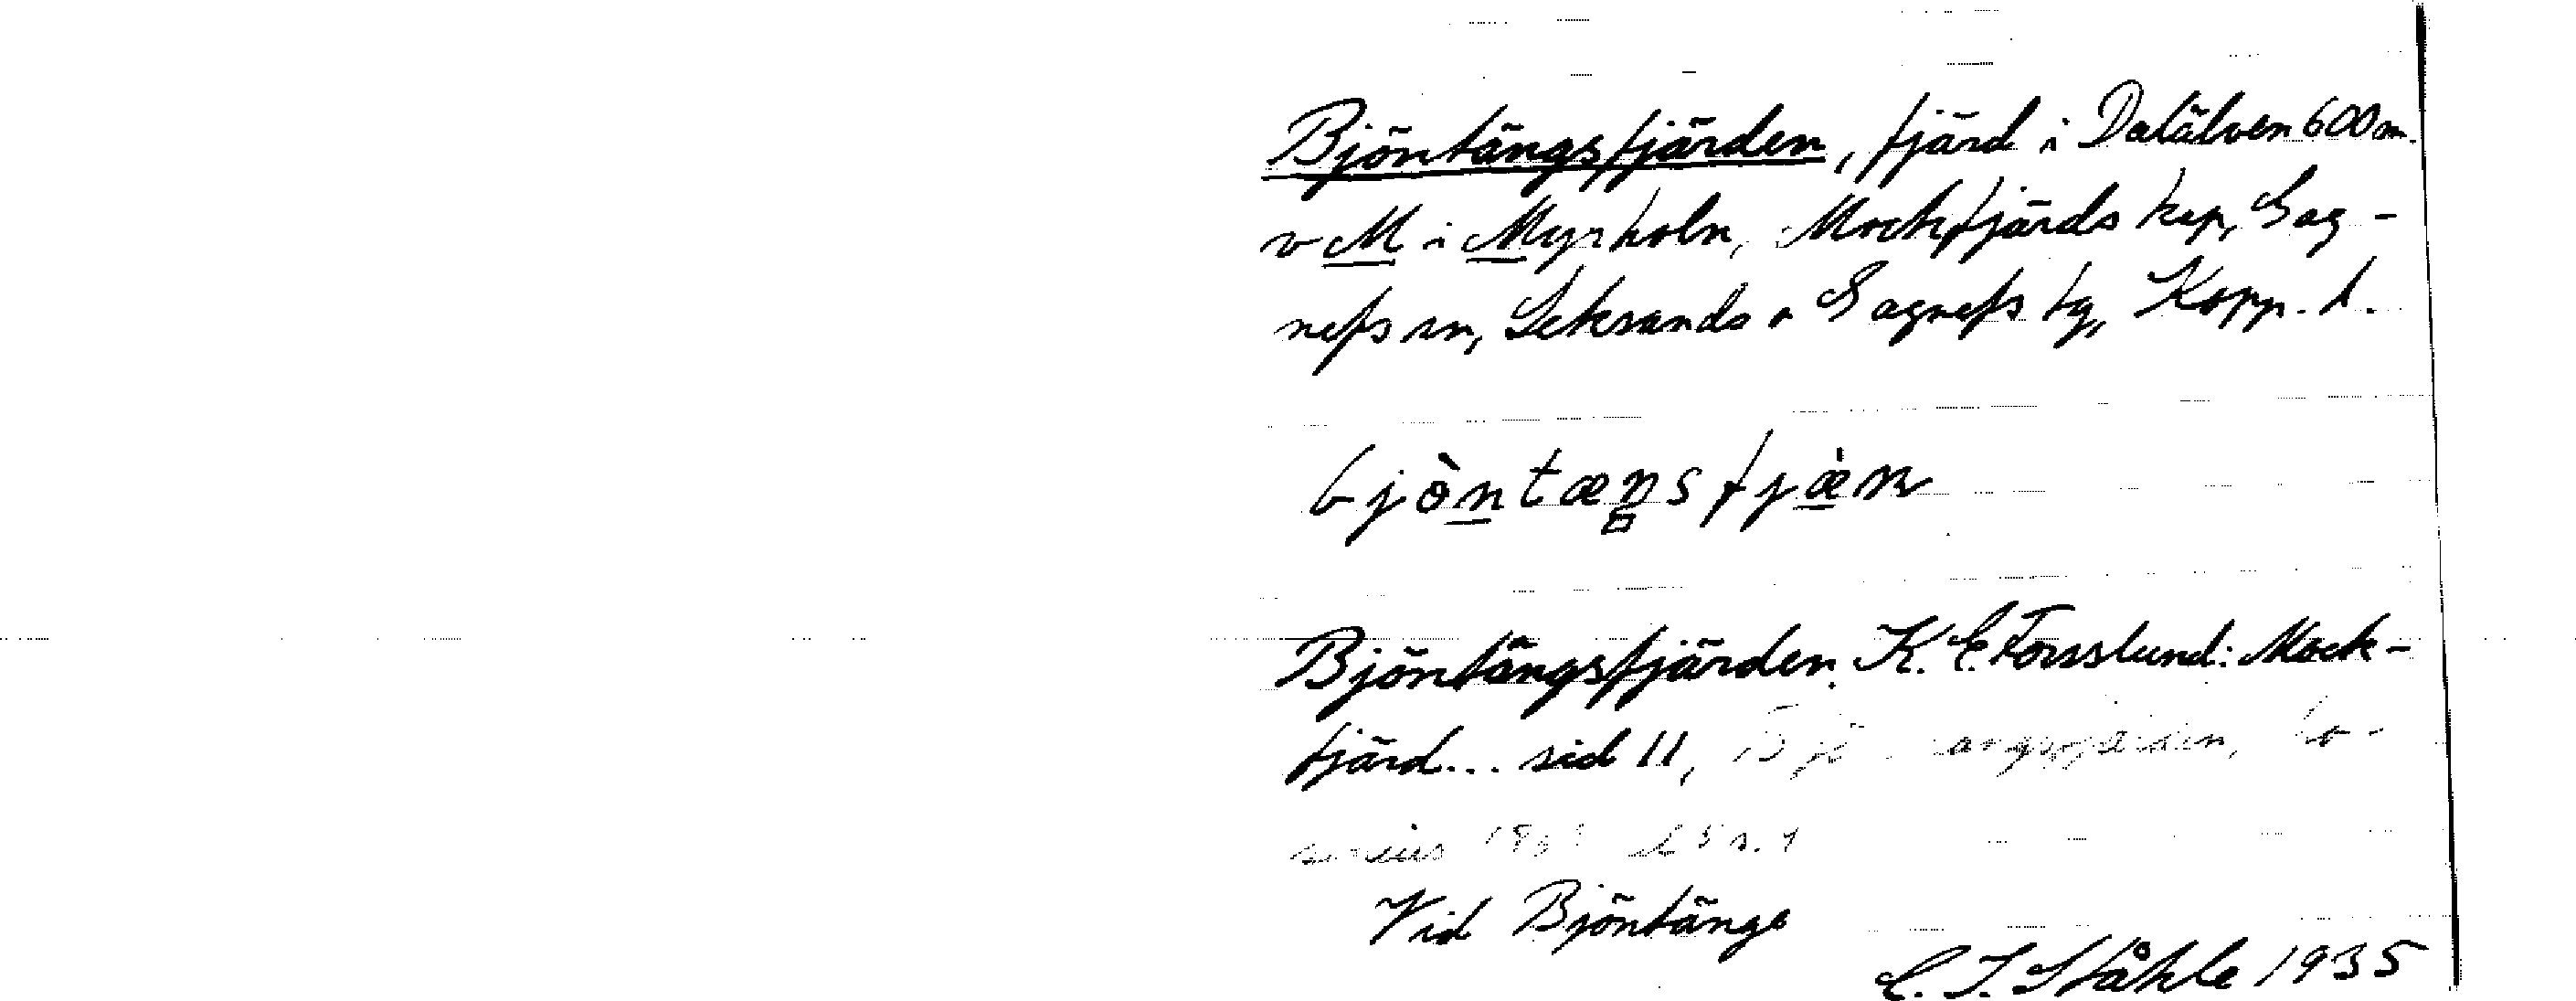 Bjöntängsfjärden, fjärd i Dalälven 600 m.
v M i Myrholn, Mockfjärds kap, Gag-
nefs sn, Leksands o Gagnefs tg, Kopp. l.
bjòntæŋsfjæ̀ṇ
Bjöntängsfjärden. K. E. Forsslund: Mock-
fjärd... sid 11,
Vid Bjöntänge
C. I. Ståhle 1935